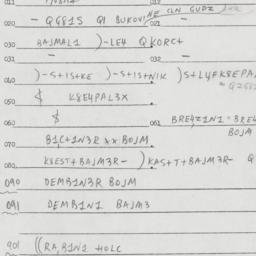 020 - Q6815 QI BUKOVINE CLN GUDZ
021 -
030 BAJMAL1 )-LE4 QKORC+
031 - 032 -
040 )-S+1S+KE )-S+1S+NIK )S+L4FK8EPA
050 $ K8E4PAL3X
060 $ 061 BRE4Z1N1 = BRE4
BOJM
070 B1C+1N3R XX BOJM
080 K8EST+BAJM3R- ) KAS+T+BAJM3R- Q
090 DEMB1N3R BOJM
091 DEMB1N1 BAJM3
901 ((RA,B1N1 HOLC